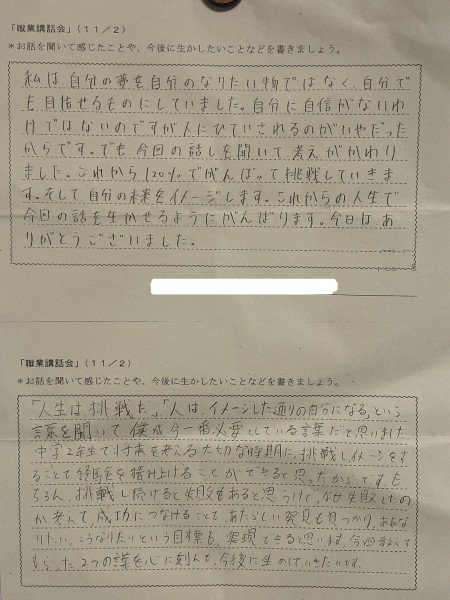 「職業講話会」(11/2)
*お話を聞いて感じたことや、今後に生かしたいことなどを書きましょう。
私は自分の夢を自分のなりたい物ではなく、自分で
も目指せるものにしていました。自分に自信がないわ
けではないのですが人にひていされるのがいやだった
からです。でも今回の話しを聞いて考えがかわり
ました。これから120%でがんばって挑戦していきま
す。そして自分の未来をイメージします。これからの人生で
今回の話を生かせるようにがんばります。今日はあ
りがとうございました。
「職業講話会」(11/2)
*お話を聞いて感じたことや、今後に生かしたいことなどを書きましょう。
「人生は、挑戦だ」「人は、イメージした通りの自分になる」という
言葉を聞いて、僕が今一番必要としている言葉だと思いました
中学2年生で将来を考える大切な時期に、挑戦しイメージをす
ることで経験を積み上げることができると思ったからです。も
ちろん、挑戦し続けると失敗もあると思うけど、なぜ失敗したの
か考えて、成功につなげることで、あたらしい発見も見つかり、ああな
りたい、こうなりたいという目標も、実現できると思います。今回教えて
もらった2つの言葉を心に刻んで、今後に生かしていきたいです。